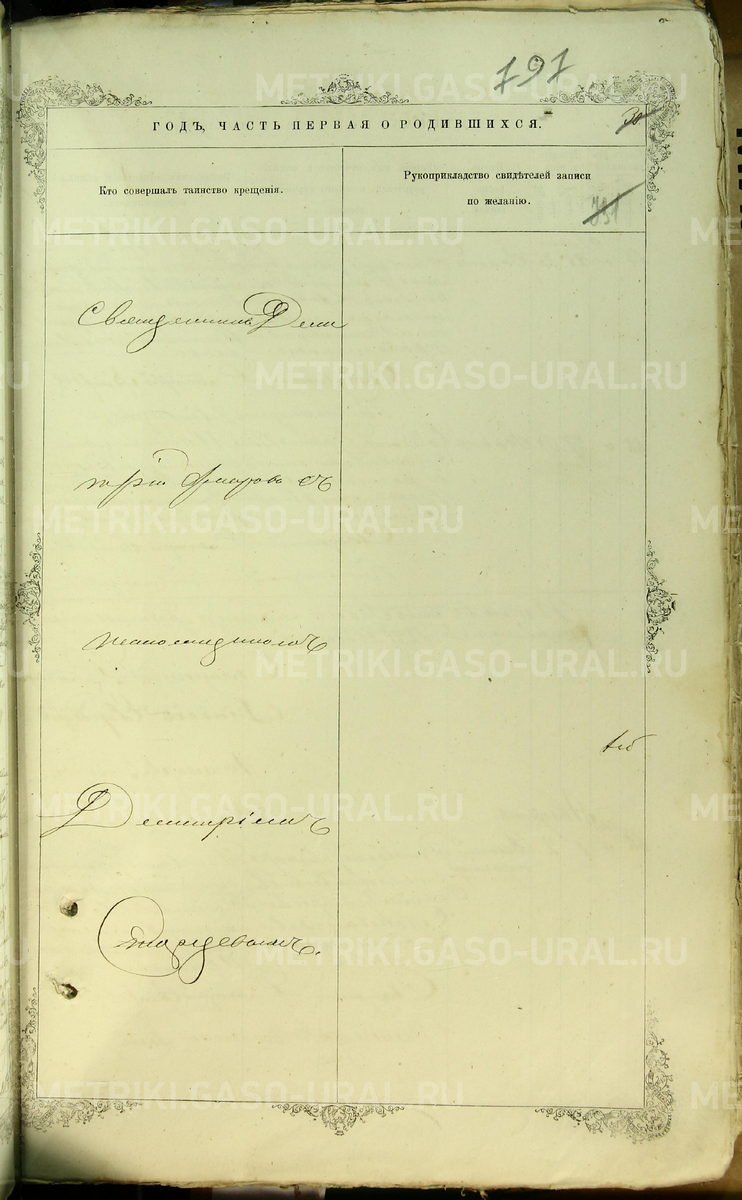 191
ГОДЪ, ЧАСТЬ ПЕРВАЯ О РОДИВШИХСЯ.
Кто совершалъ таинство крещенія.
Рукоприкладство свидѣтелей записи
по желанію.
Священникъ Дими
трій съ
псаломщикомъ
Димитріемъ
METRIKI.GASO-URAL.RU